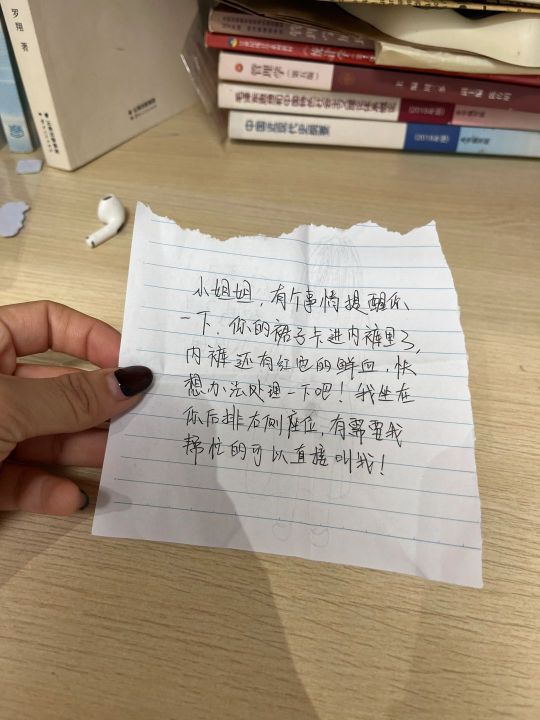 罗翔 著
管理学
中国近现代史纲要
小姐姐，有个事情提醒你
一下．你的裙子卡进内裤里了，
内裤还有红色的鲜血，快
想办法处理一下吧！我坐在
你后排右侧座位，有需要我
帮忙的可以直接叫我！